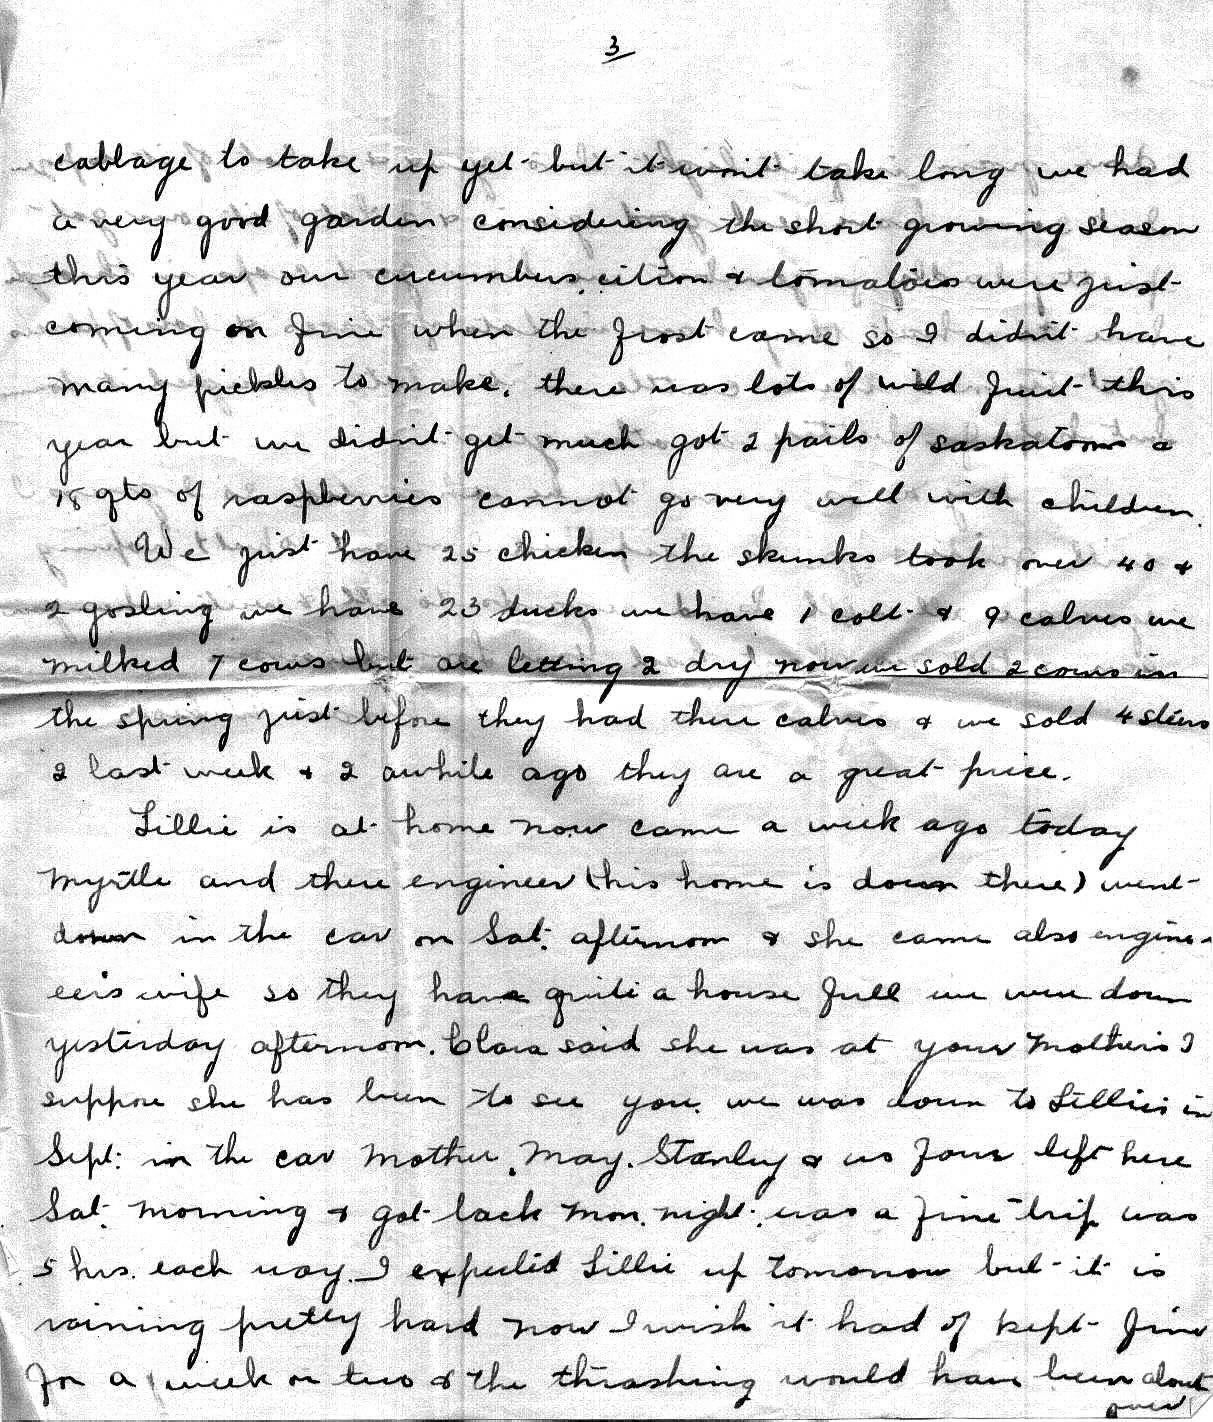 3
cabbage to take up yet but it won't take long we had
a very good garden considering the short growing season
this year our cucumbers, citron & tomatoes were just
coming on fine when the frost came so I didn't have
many pickles to make. there was lots of wild fruit this
year but we didn't get much got 2 pails of saskatoons a
18 qts of raspberries cannot go very well with children.
We just have 25 chicken the skunks took over 40 &
2 gosling we have 23 ducks we have 1 colt & 9 calves we
milked 7 cows but are letting 2 dry now we sold 2 cows in
the spring just before they had there calves & we sold 4 steers
2 last week & 2 awhile ago they are a great price.
Lillie is at home now came a week ago today
Myrtle and there engineer (his home is down there) went
down in the car on Sat. afternoon & she came also engine-
eer's wife so they have quite a house full we were down
yesterday afternoon. Clara said she was at your Mother's I
suppose she has been to see you. we was down to Lillie's in
Sept. in the car Mother, May, Stanley & us four left here
Sat. morning & got back Mon. night. was a fine trip was
5 hrs. each way. I expected Lillie up tomorrow but it is
raining pretty hard now I wish it had of kept fine
for a week or two & the thrashing would have been about
over